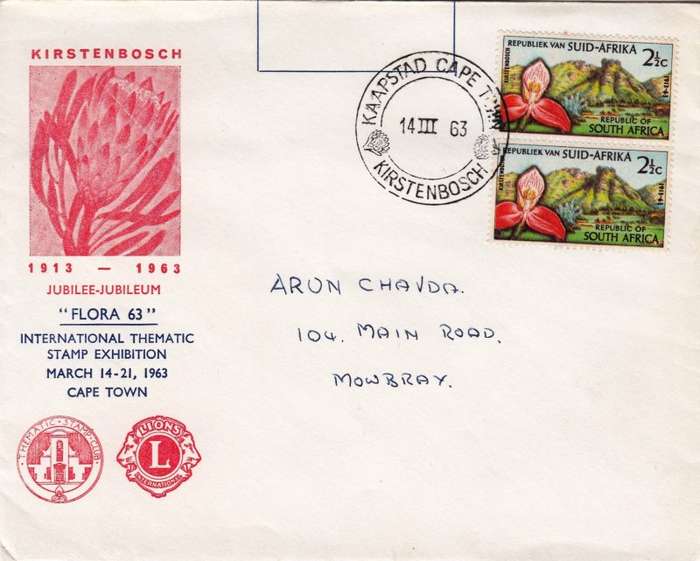 KIRSTENBOSCH
1913 — 1963
JUBILEE-JUBILEUM
"FLORA 63"
INTERNATIONAL THEMATIC
STAMP EXHIBITION
MARCH 14-21, 1963
CAPE TOWN
THEMATIC STAMP CLUB
LIONS
L
INTERNATIONAL
KAAPSTAD CAPE TOWN
14 III 63
KIRSTENBOSCH
REPUBLIEK VAN SUID-AFRIKA
2½c
KIRSTENBOSCH
1913-63
REPUBLIC OF
SOUTH AFRICA
REPUBLIEK VAN SUID-AFRIKA
2½c
KIRSTENBOSCH
1913-63
REPUBLIC OF
SOUTH AFRICA
ARUN CHAVDA.
104, MAIN ROAD,
MOWBRAY.